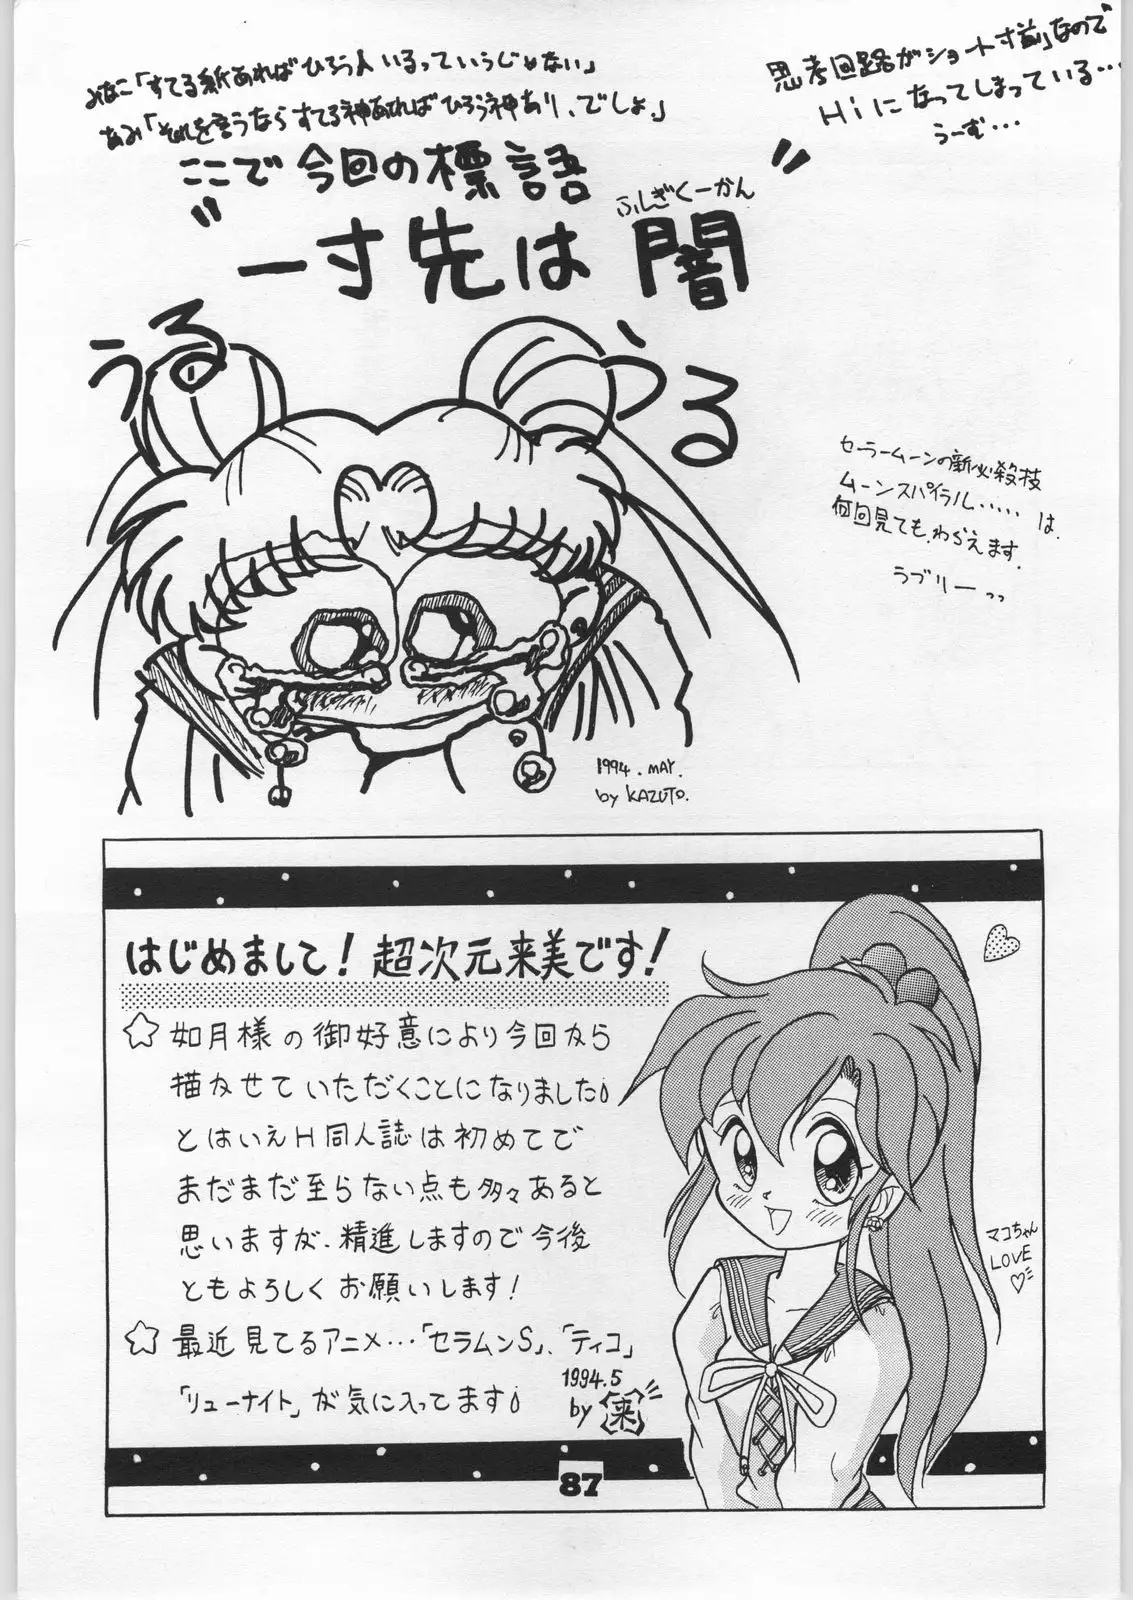 みなこ「すてる紙あればひろう人いるっていうじゃない」
あみ「それを言うならすてる神あればひろう神あり、でしょ。」
思考回路がショート寸前」なので
Hiになってしまっている…
うーむ…
ここで今回の標語
ふしぎくーかん
"一寸先は闇"
うる
うる
セーラームーンの新必殺技
ムーンスパイラル…… は
何回見ても、わらえます.
ラブリーっっ
1994. MAY.
by KAZUTO.
はじめまして!超次元来美です!
☆如月様の御好意により今回から
描かせていただくことになりました。
とはいえH同人誌は初めてで
まだまだ至らない点も多々あると
思いますが、精進しますので今後
ともよろしくお願いします!
☆最近見てるアニメ…「セラムンS」、「ティコ」
「リューナイト」が気に入ってます。
1994.5
by 来
マコちゃん
LOVE
♡
87